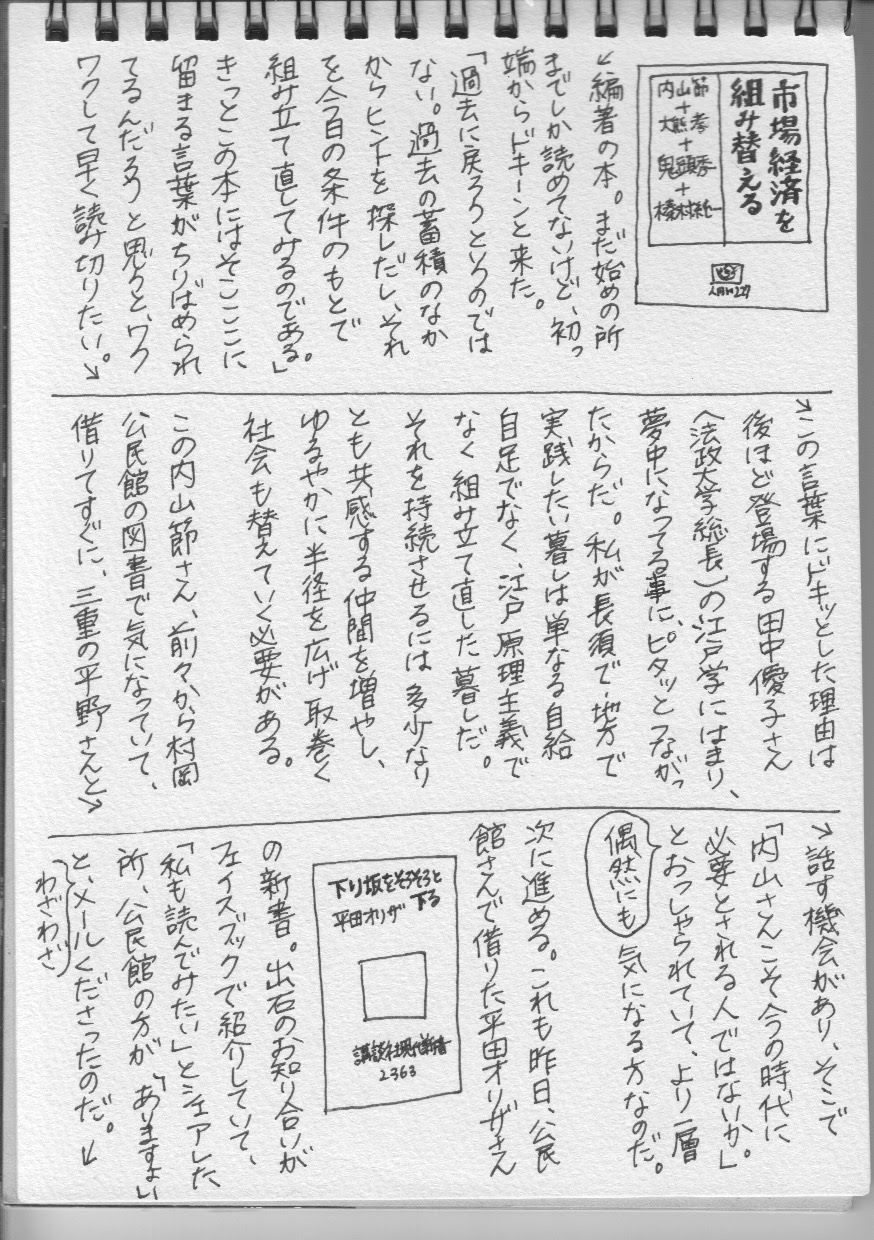 市場経済を
組み替える
内山節
+
大熊孝
+
鬼頭秀一
+
榛村純一
↙編著の本。まだ始めの所
までしか読めてないけど、初っ
端からドキーンと来た。
「過去に戻ろうというのでは
ない。過去の蓄積のなか
からヒントを探しだし、それ
を今日の条件のもとで
組み立て直してみるのである」
きっとこの本にはそこここに
留まる言葉がちりばめられ
てるんだろうと思うと、ワク
ワクして早く読み切りたい。↘
↘この言葉にドキッとした理由は
後ほど登場する田中優子さん
(法政大学総長)の江戸学にはまり、
夢中になってる事に、ピタッとつながっ
たからだ。私が長須で・地方で
実践したい暮しは単なる自給
自足でなく、江戸原理主義で
なく組み立て直した暮しだ。
それを持続させるには多少なり
とも共感する仲間を増やし、
ゆるやかに半径を広げ取巻く
社会も替えていく必要がある。
この内山節さん、前々から村岡
公民館の図書で気になっていて、
借りてすぐに、三重の平野さんと↘
↘話す機会があり、そこで
「内山さんこそ今の時代に
必要とされる人ではないか」。
とおっしゃられていて、より一層
偶然にも気になる方なのだ。
次に進める。これも昨日、公民
館さんで借りた平田オリザさん
下り坂をそろそろと
下る
平田オリザ
講談社現代新書
2363
の新書。出石のお知り合いが
フェイスブックで紹介していて、
「私も読んでみたい」とシェアした
所、公民館の方が、「ありますよ」
と、メールくださったのだ。↓
わざわざ